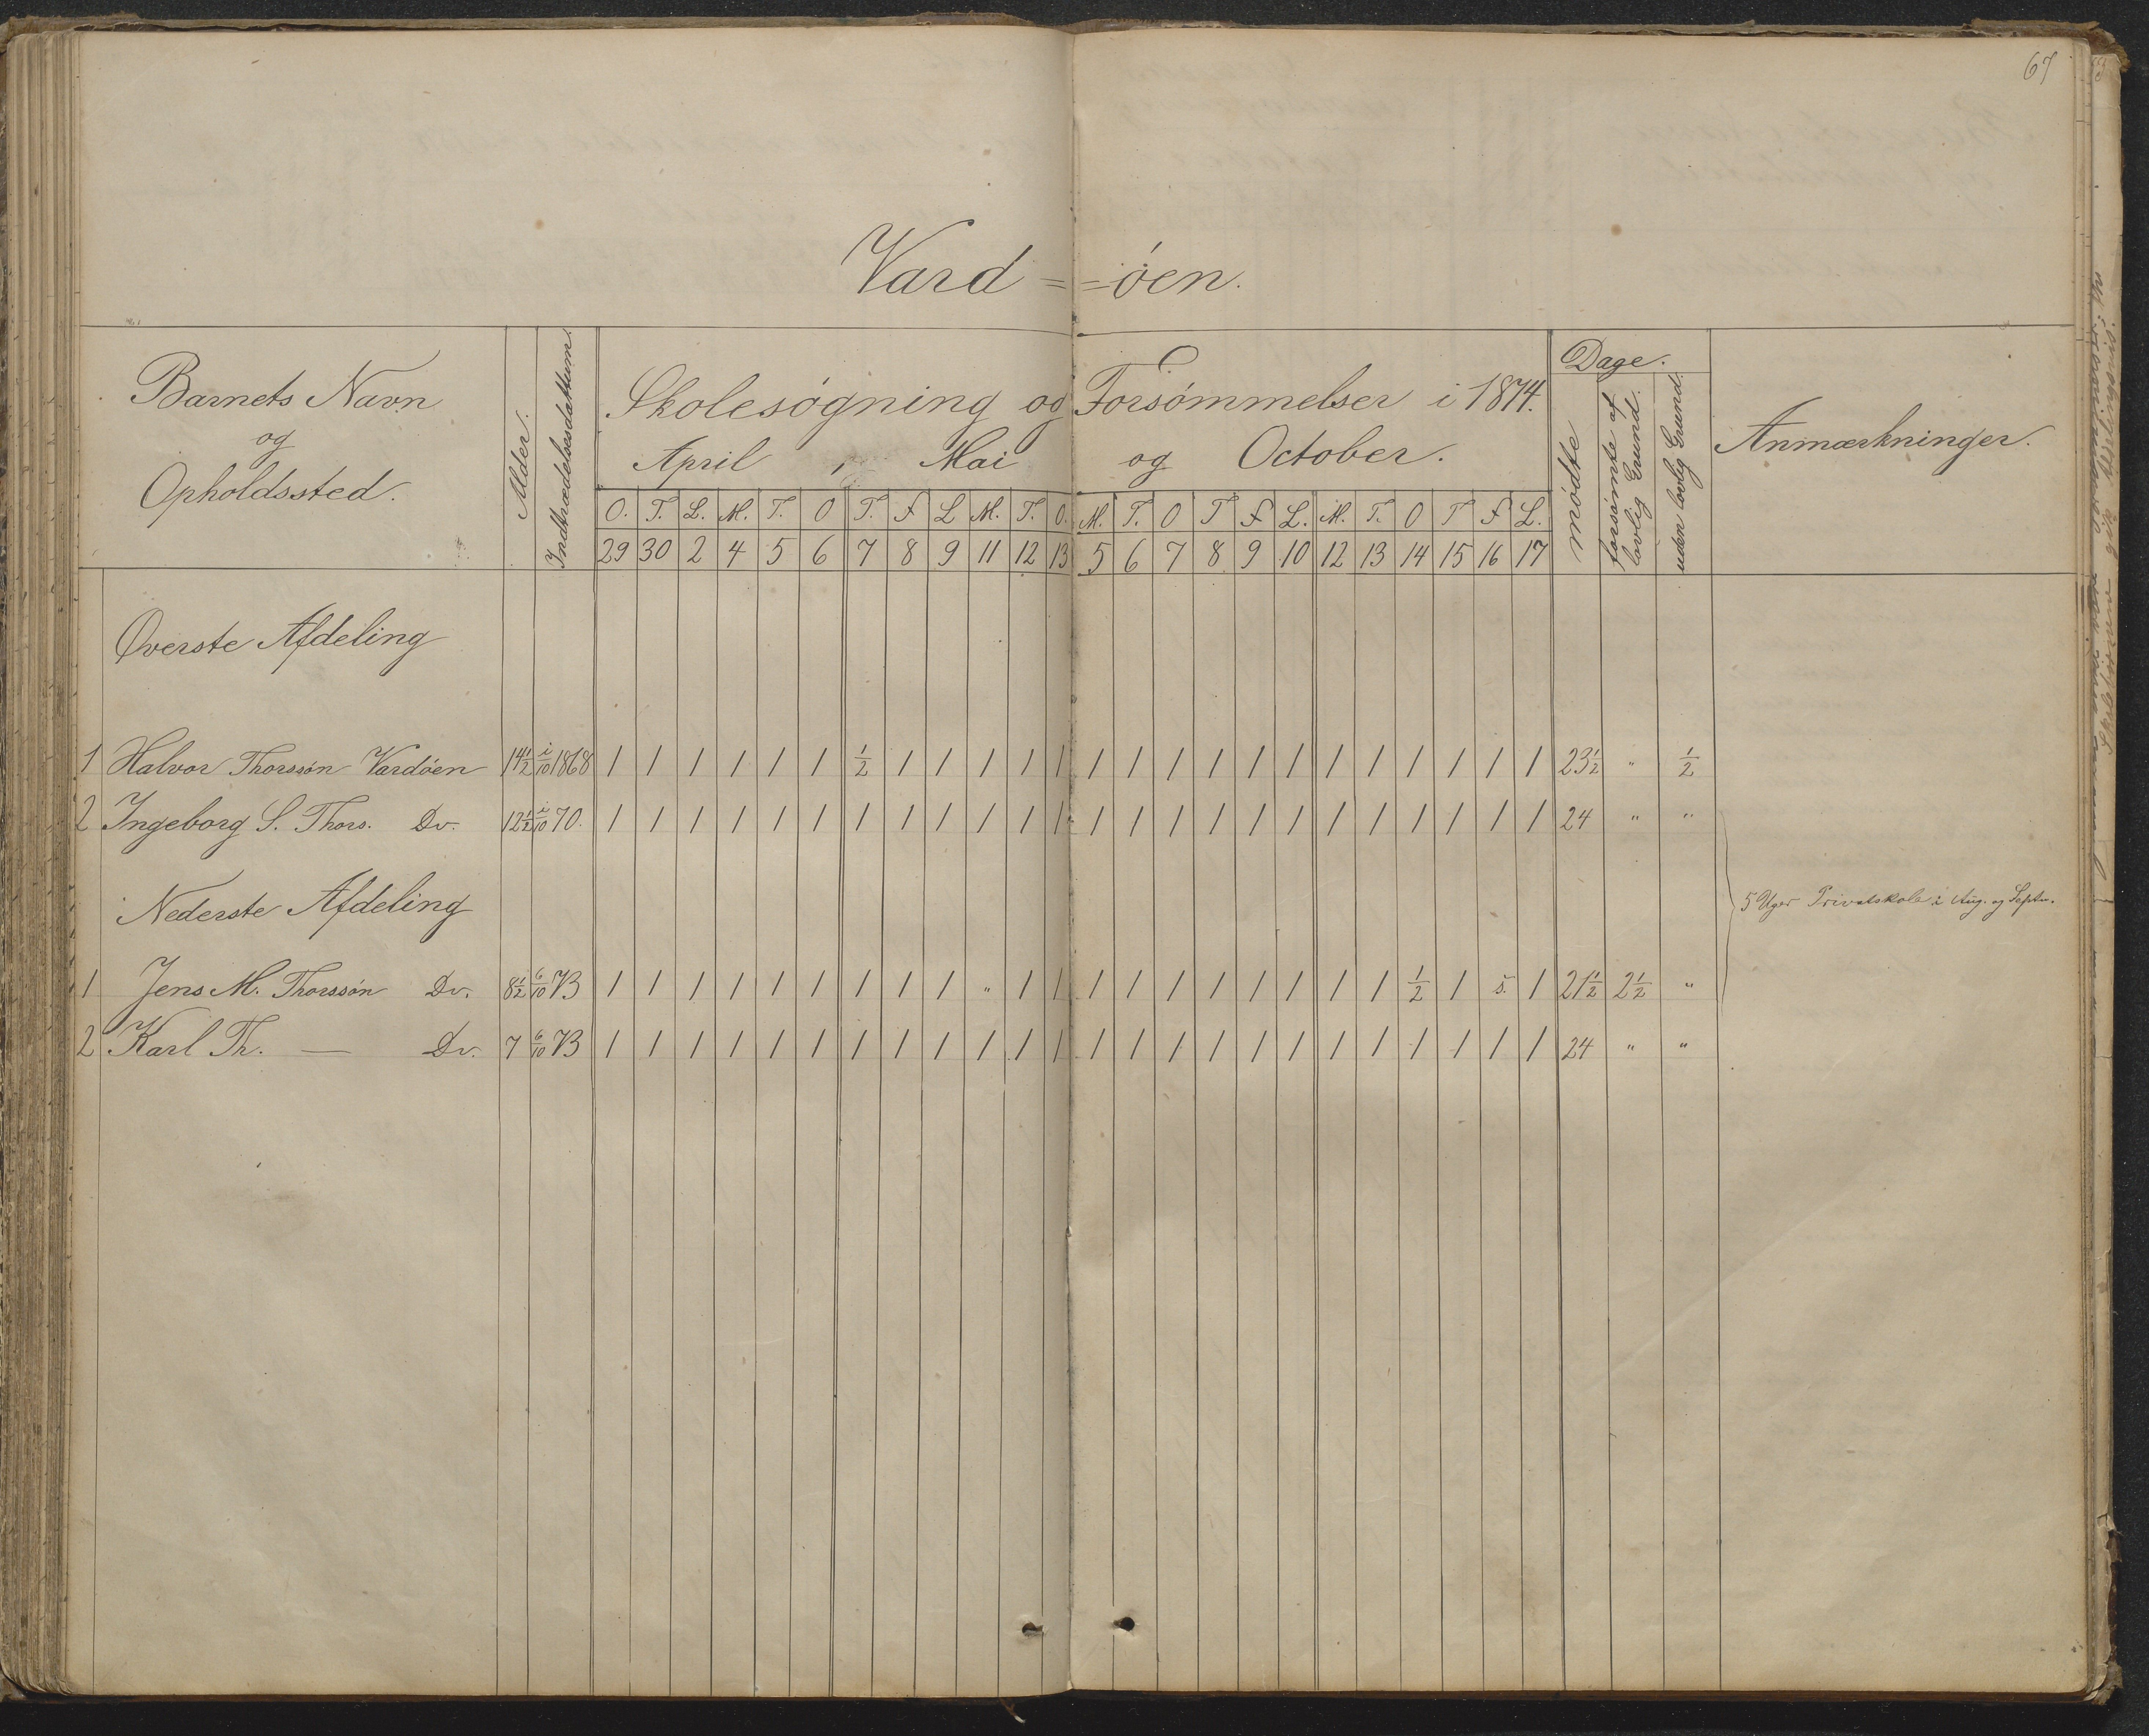 67
Vard==öen.
Barnets Navn
og
Opholdssted.
Alder.
Indtrædelsesdattum.
Skolesøgning og Forsømmelser i 1874.
April, Mai og October.
O. T. L. M. T. O T. F L M. T. O. M. T. O T F L. M. T. O T F L.
29 30 2 4 5 6 7 8 9 11 12 13 5 6 7 8 9 10 12 13 14 15 16 17
Dage.
mødte
forsømte af lovlig Grund.
uden lovlig Grund.
Anmærkninger.
Øverste Afdeling
1 Halvor Thorssøn Vardøen 14½ i/10 1868 1 1 1 1 1 1 ½ 1 1 1 1 1 1 1 1 1 1 1 1 1 1 1 1 1 23½ " ½
2 Ingeborg S. Thors. Do. 12½ i/10 70. 1 1 1 1 1 1 1 1 1 1 1 1 1 1 1 1 1 1 1 1 1 1 1 1 24 " "
Nederste Afdeling
5 Uger Privatskole i Aug. og Septr.
1 Jens M. Thorssøn Do. 8½ 6/10 73 1 1 1 1 1 1 1 1 1 " 1 1 1 1 1 1 1 1 1 1 ½ 1 s. 1 21½ 2½ "
2 Karl Th. — Do. 7 6/10 73 1 1 1 1 1 1 1 1 1 1 1 1 1 1 1 1 1 1 1 1 1 1 1 1 24 " "